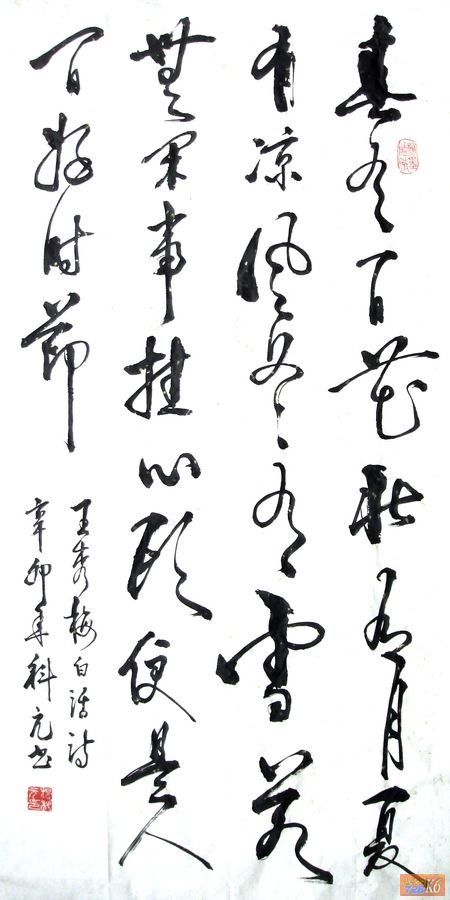 春有百花秋有月夏
有凉风冬有雪若
無闲事挂心头便是人
间好时節
王秀梅白话诗
辛卯年科书